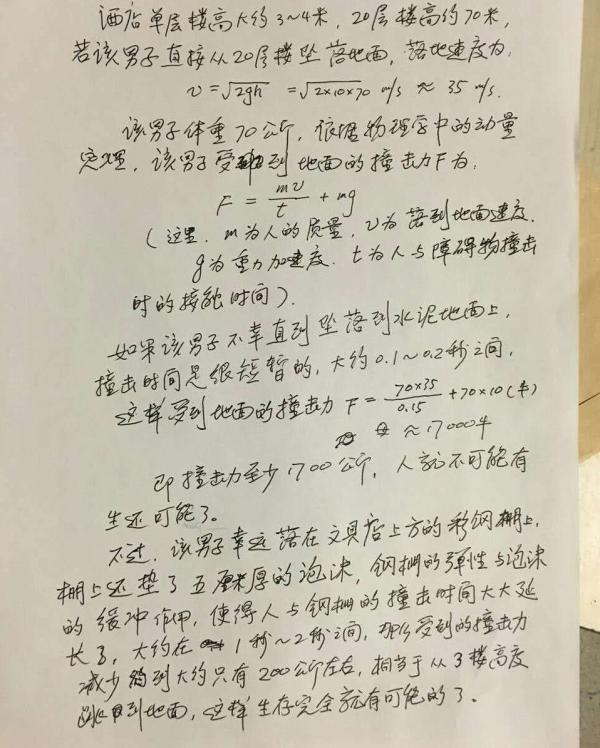 酒店单层楼高大约3~4米，20层楼高约70米，
若该男子直接从20层楼坠落地面，落地速度为：
v=√2gh =√2×10×70 m/s ≈ 35 m/s.
该男子体重70公斤，根据物理学中的动量
定理，该男子受到地面的撞击力F为：
F = mv/t + mg
（这里，m为人的质量，v为落到地面速度，
g为重力加速度，t为人与障碍物撞击
时的接触时间）.
如果该男子不幸直到坠落到水泥地面上，
撞击时间是很短暂的，大约0.1~0.2秒之间，
这样受到地面的撞击力 F = 70×35/0.15 + 70×10(牛)
≈17000牛
即撞击力至少1700公斤，人就不可能有
生还可能了。
不过，该男子幸运落在文具店上方的彩钢棚上，
棚上还垫了五厘米厚的泡沫，钢棚的弹性与泡沫
的缓冲作用，使得人与钢棚的撞击时间大大延
长了，大约在1秒~2秒之间，那么受到的撞击力
减少到大约只有200公斤左右，相当于从3楼高度
跳到地面，这样生存完全就有可能的了。